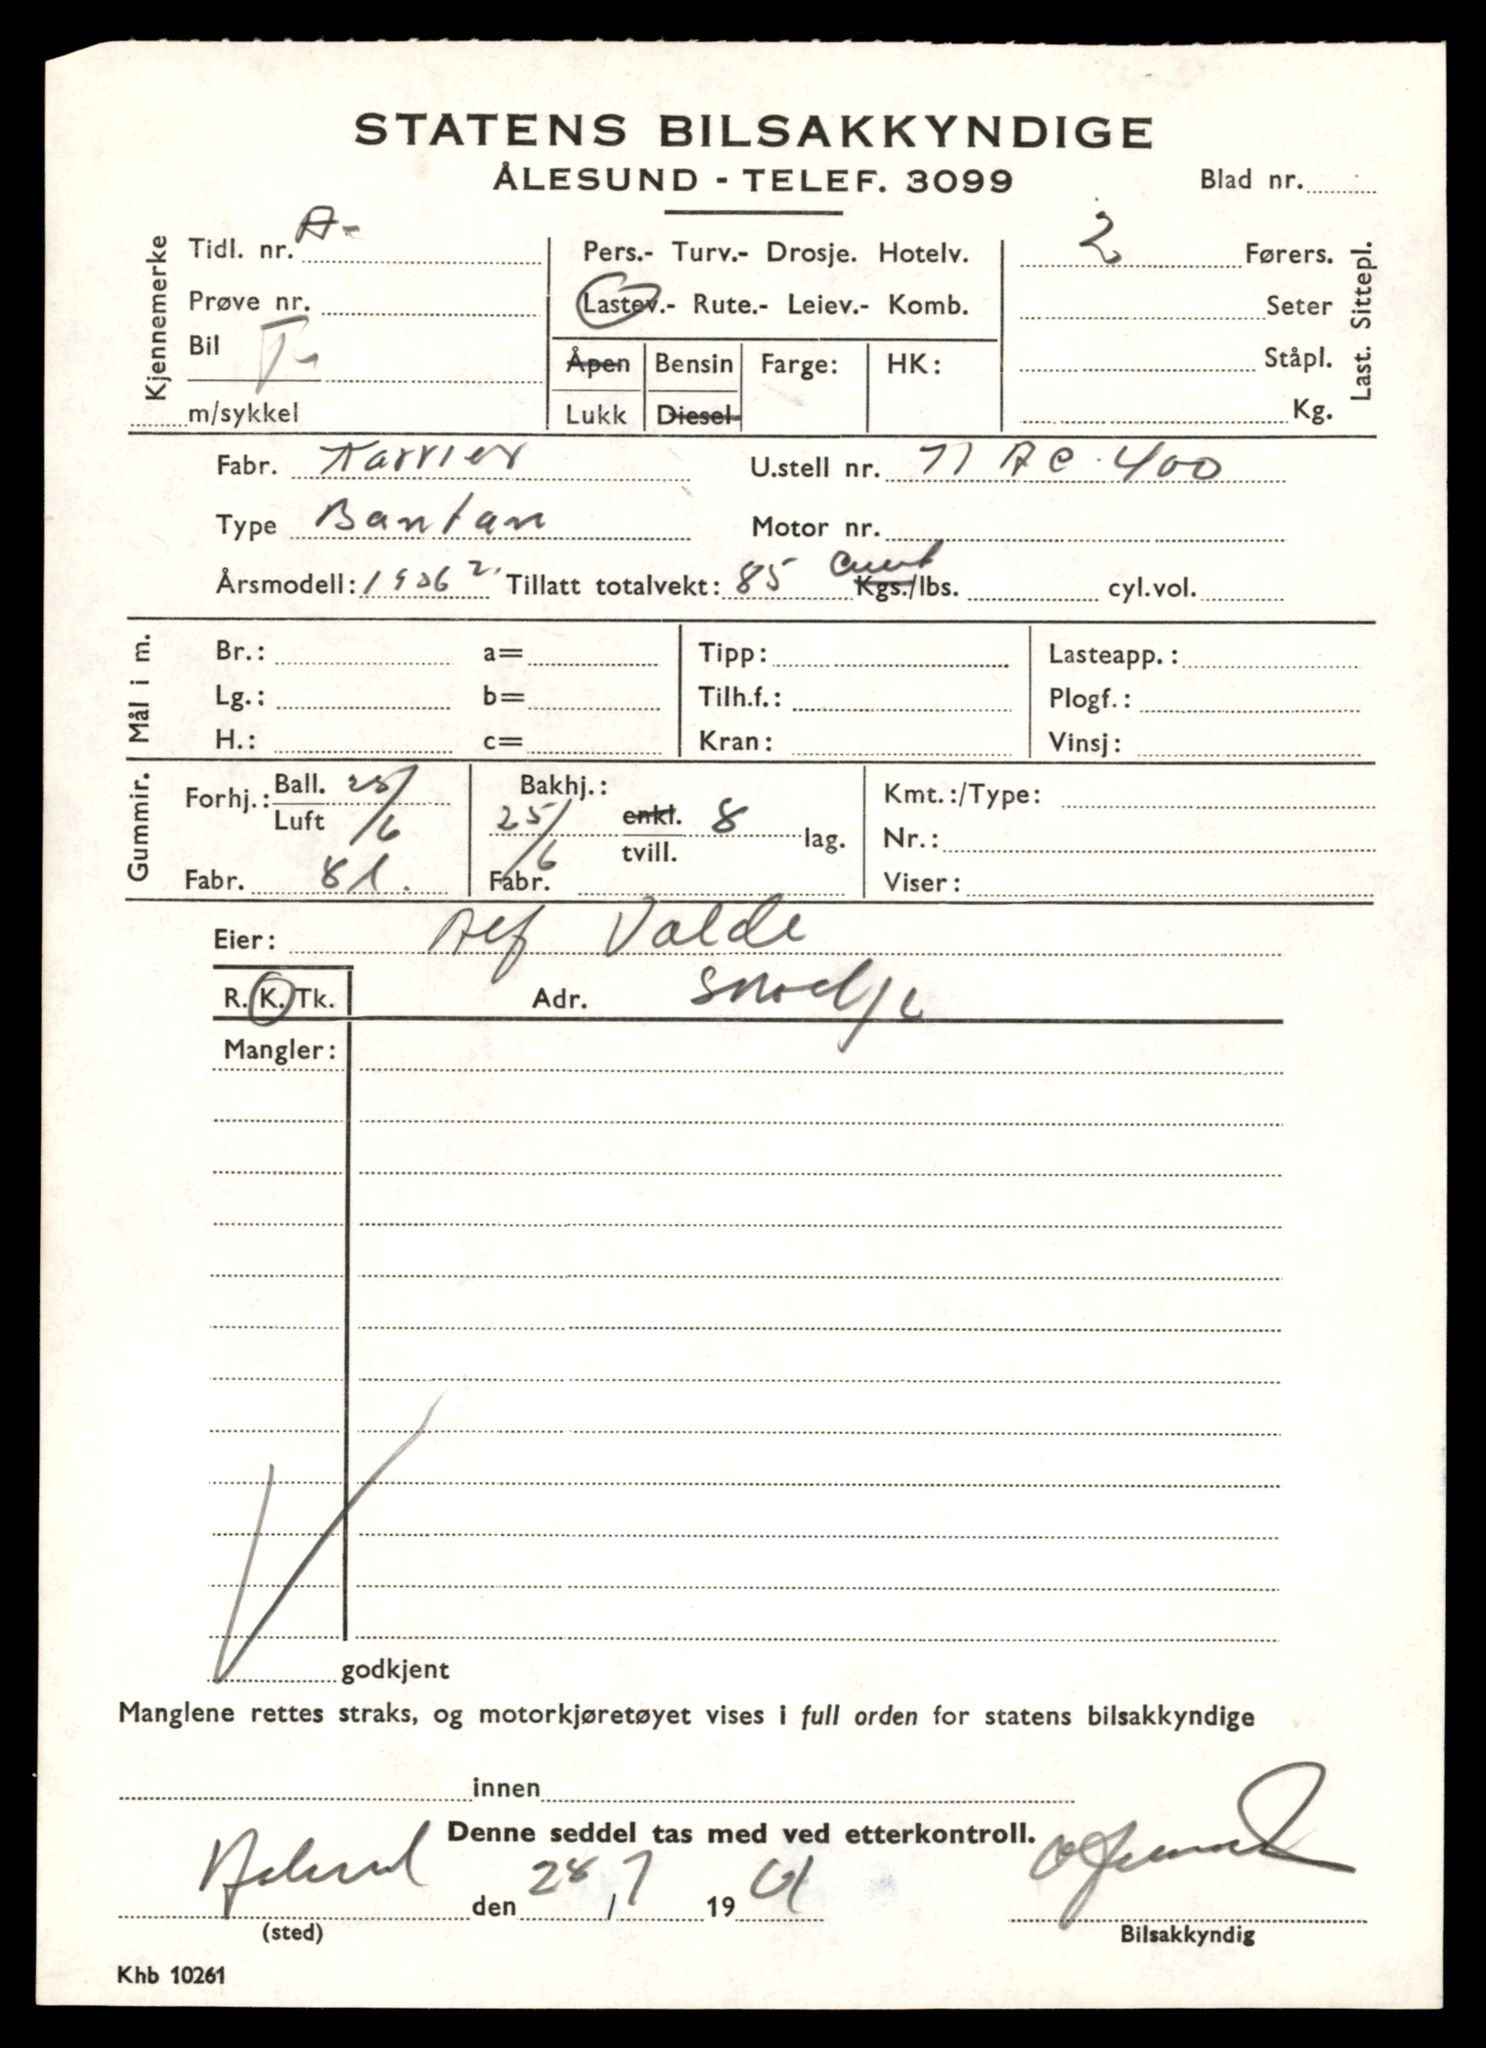 STATENS BILSAKKYNDIGE
ÅLESUND - TELEF. 3099
Blad nr.
Kjennemerke
Tidl. nr. A-
Prøve nr.
Bil T-
m/sykkel
Pers.- Turv.- Drosje. Hotelv.
Lastev.- Rute.- Leiev.- Komb.
Åpen Bensin Farge: HK:
Lukk Diesel
2 Førers.
Seter
Ståpl.
Kg.
Last. Sittepl.
Fabr. Karrier U.stell nr. 71 AC.400
Type Bantan Motor nr.
Årsmodell: Tillatt totalvekt: 85 cwt Kgs./lbs. cyl.vol.
Mål i m.
Br.: a= Tipp: Lasteapp.:
Lg.: b= Tilh.f.: Plogf.:
H.: c= Kran: Vinsj:
Gummir.
Forhj.: Ball. 25/6 Bakhj.: Kmt.:/Type:
Luft 25/6 enkl. 8 lag. Nr.:
tvill.
Fabr. 8 l. Fabr. Viser:
Eier: Alf Valde
R. K. Tk. Adr. Skodje
Mangler:
godkjent
Manglene rettes straks, og motorkjøretøyet vises i full orden for statens bilsakkyndige
innen
Denne seddel tas med ved etterkontroll.
Ålesund den 28/7 1961
(sted) Bilsakkyndig
Khb 10261